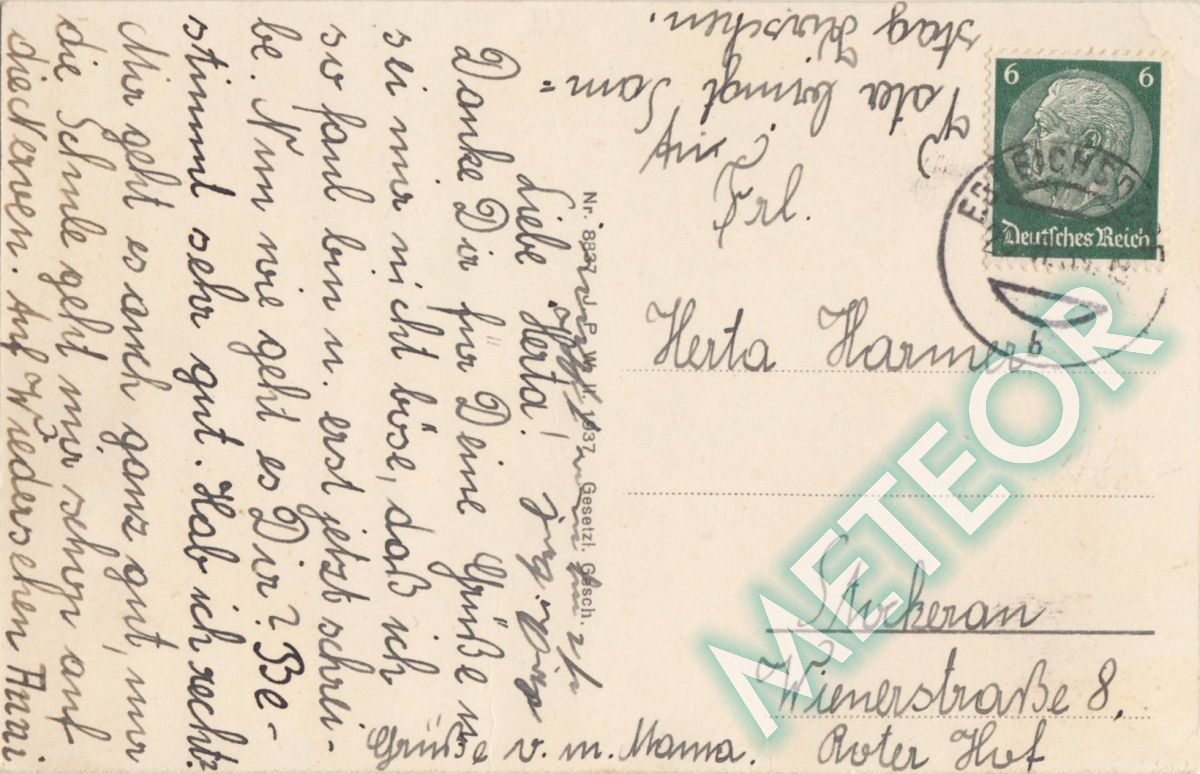 Liebe Herta!
Danke Dir für Deine Grüße u.
sei mir nicht böse, daß ich
so faul bin u. erst jetzt schrei-
be. Nun wie geht es Dir? Be-
stimmt sehr gut. Hab ich recht?
Mir geht es auch ganz gut, nur
die Schule geht mir schon auf
die Nerven. Auf Wiedersehen
Grüße v. m. Mama.
Vater bringt Sam=
stag Kirschen.
Nr. 8837 P. W. K. 1937 Gesetzl. Gesch.
6 6
Deutsches Reich
b
An
Frl.
Herta Harmer
Stockerau
Wienerstraße 8,
Roter Hof
METEOR